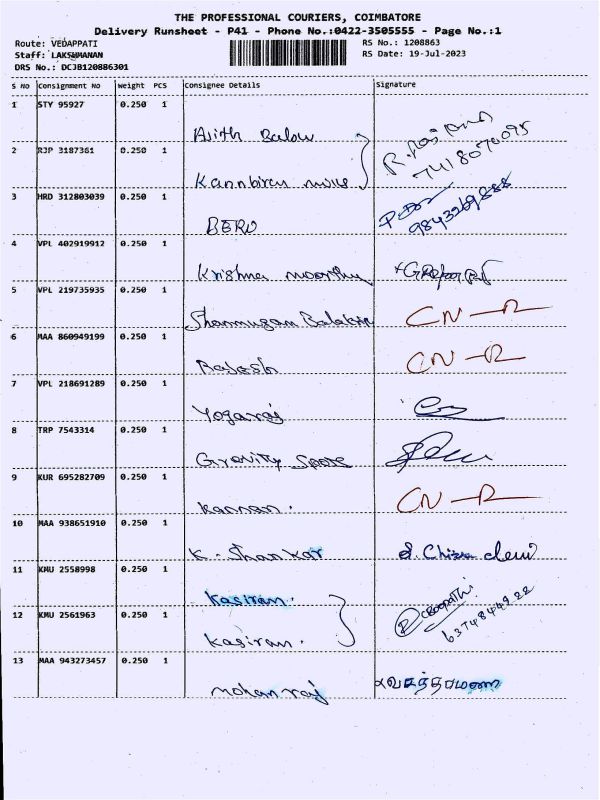 THE PROFESSIONAL COURIERS, COIMBATORE
Delivery Runsheet - P41 - Phone No.:0422-3505555 - Page No.:1
Route: VEDAPPATI
Staff: LAKSHMANAN
DRS No.: DCJB120886301
RS No.: 1208863
RS Date: 19-Jul-2023
S No Consignment No Weight PCS Consignee Details Signature
1 STY 95927 0.250 1
Ajith Balou
7418070095
2 RJP 3187361 0.250 1
Kannbiran mills
3 HRD 312803039 0.250 1
BERO 9843269888
4 VPL 402919912 0.250 1
Krishna moorthy
5 VPL 219735935 0.250 1
Shanmugam CN-R
6 MAA 860949199 0.250 1
Rajesh CN-R
7 VPL 218691289 0.250 1
Yogaraj
8 TRP 7543314 0.250 1
Gravitty
9 KUR 695282709 0.250 1
Kannan. CN-R
10 MAA 938651910 0.250 1
K. Shankar
11 KMU 2558998 0.250 1
Kasiram.
12 KMU 2561963 0.250 1
Kasiram.
13 MAA 943273457 0.250 1
Mohan raj